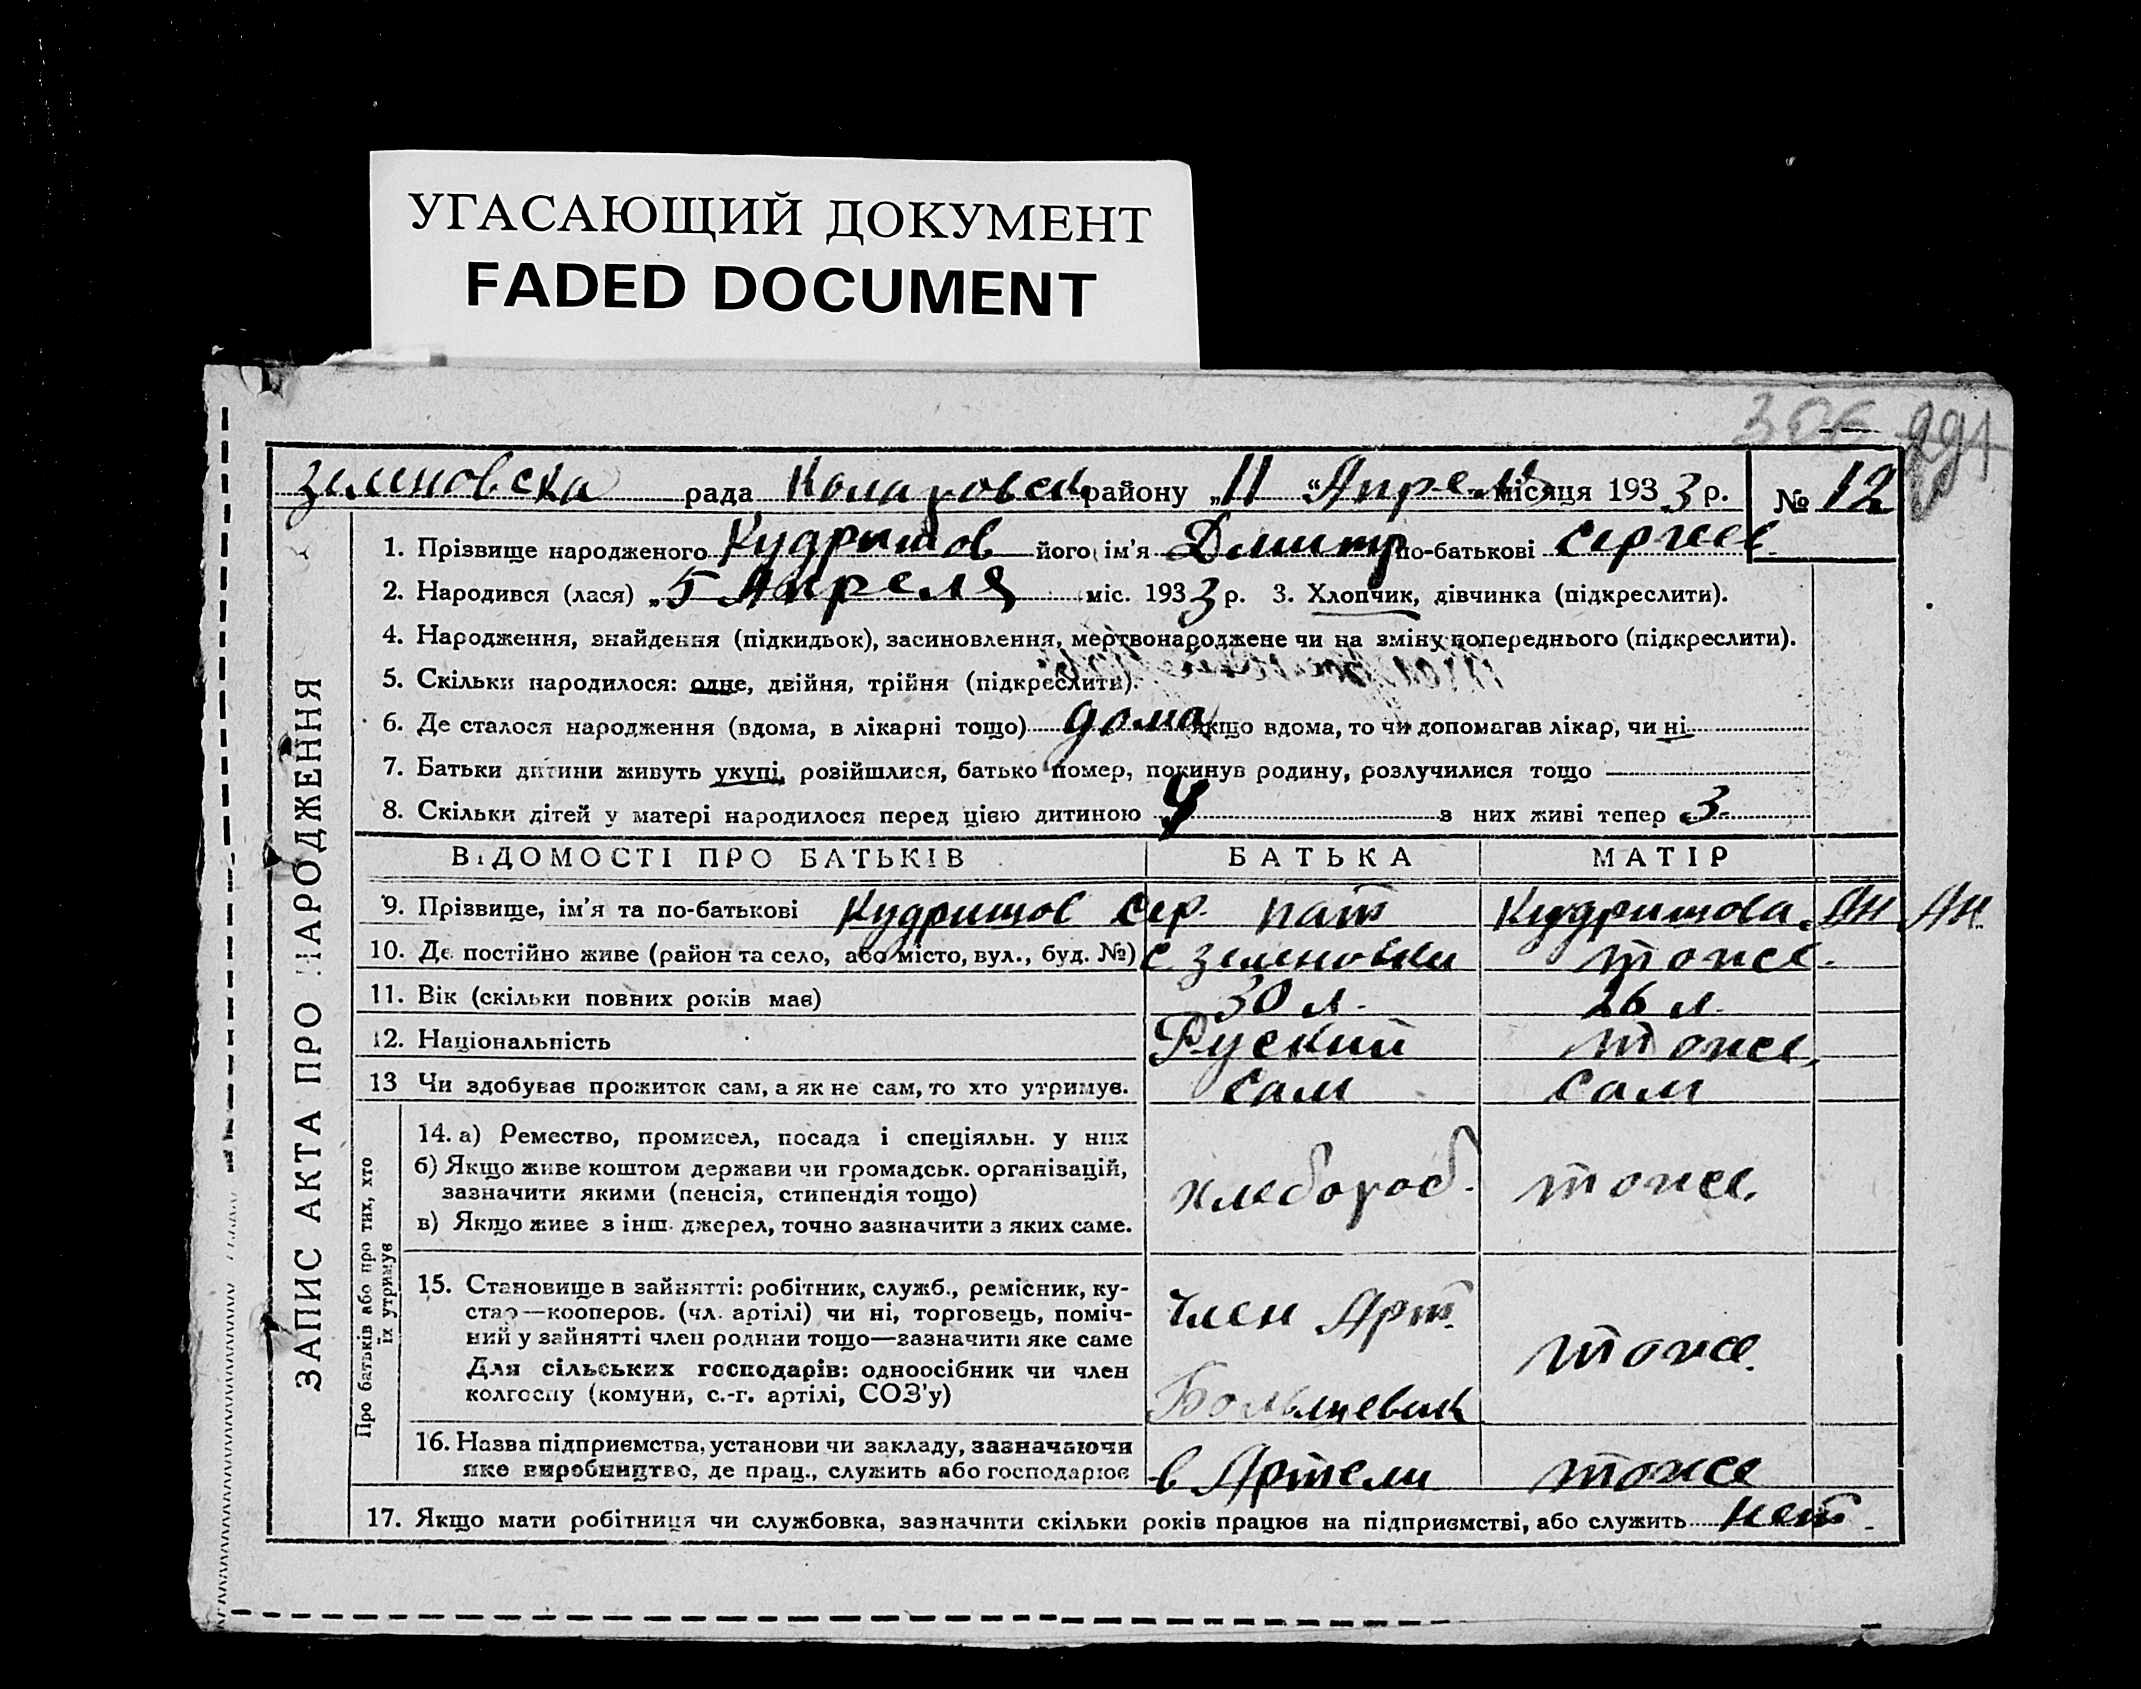 УГАСАЮЩИЙ ДОКУМЕНТ
FADED DOCUMENT
306 291
Зеленовска рада Коларовск району „11 “ Апреля місяця 1933 р. № 12
ЗАПИС АКТА ПРО НАРОДЖЕННЯ
1. Прізвище народженого Кудришов його ім'я Дмитр по-батькові Сергеев
2. Народився (лася) „5 Апреля міс. 1933 р. 3. Хлопчик, дівчинка (підкреслити).
4. Народження, знайдення (підкидьок), засиновлення, мертвонароджене чи на зміну попереднього (підкреслити).
5. Скільки народилося: одне, двійня, трійня (підкреслити).
6. Де сталося народження (вдома, в лікарні тощо) дома якщо вдома, то чи допомагав лікар, чи ні
7. Батьки дитини живуть укупі, розійшлися, батько помер, покинув родину, розлучилися тощо
8. Скільки дітей у матері народилося перед цією дитиною 4 з них живі тепер 3
ВІДОМОСТІ ПРО БАТЬКІВ БАТЬКА МАТІР
9. Прізвище, ім'я та по-батькові Кудришов Сер. пат Кудришова Ан Ан.
10. Де постійно живе (район та село, або місто, вул., буд. №) с Зеленовки тоже.
11. Вік (скільки повних років має) 30 л. 26 л.
12. Національність Руский тоже,
13 Чи здобував прожиток сам, а як не сам, то хто утримує. сам сам
Про батьків або про тих, хто
їх утримує
14. а) Ремество, промисел, посада і спеціяльн. у них
б) Якщо живе коштом держави чи громадськ. організацій,
зазначити якими (пенсія, стипендія тощо)
в) Якщо живе з інш. джерел, точно зазначити з яких саме.
хлебороб. тоже.
15. Становище в зайнятті: робітник, служб., ремісник, ку-
стар—кооперов. (чл. артілі) чи ні, торговець, поміч-
ний у зайнятті член родини тощо—зазначити яке саме
Для сільських господарів: одноосібник чи член
колгоспу (комуни, с.-г. артілі, СОЗ'у)
член Арт.
Большевик
тоже.
16. Назва підприємства, установи чи закладу, зазначаючи
яке виробництво, де прац., служить або господарює
в Артели тоже
17. Якщо мати робітниця чи службовка, зазначити скільки років працює на підприємстві, або служить нет.